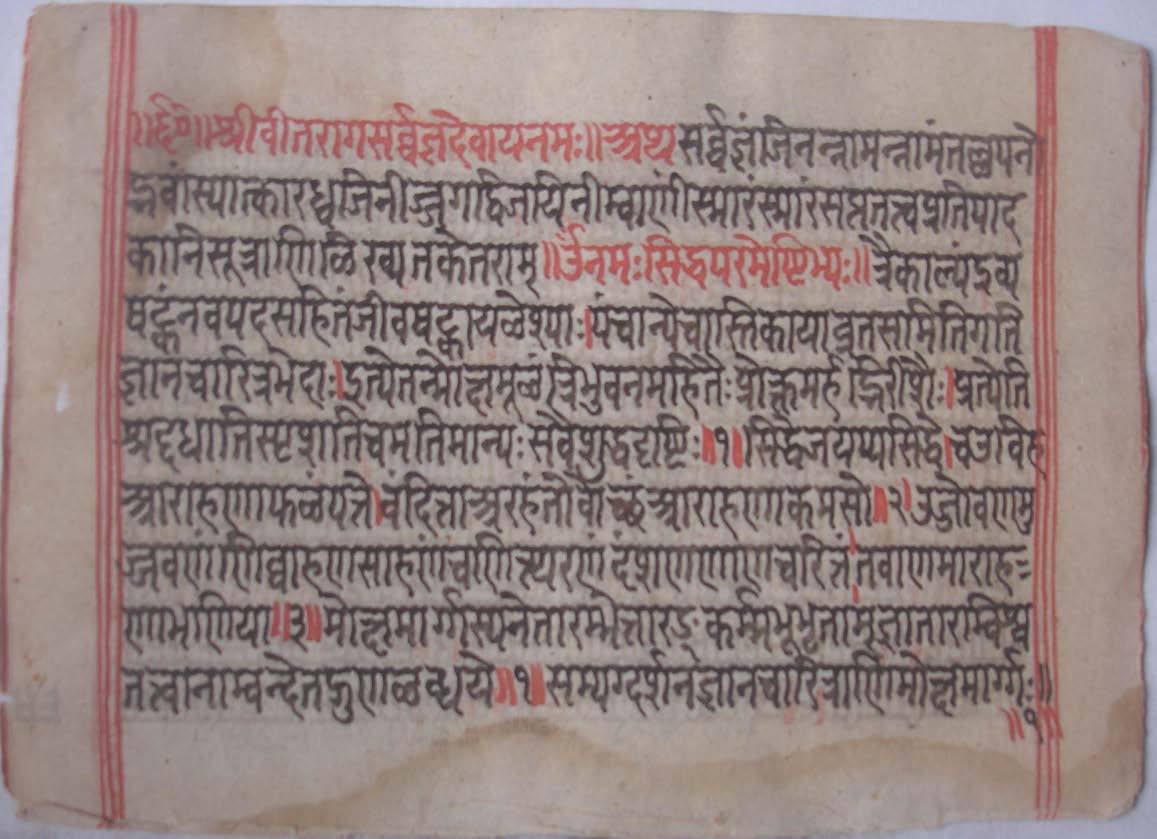 ॥र्द्द०॥श्रीवीतरागसर्व्वज्ञदेवायनमः॥अथसर्व्वज्ञंजिनन्नामन्नामंतळ्वपनो
द्भवांस्यात्कारध्वजिनीज्जगद्विजयिनीम्वाणींस्मारंस्मारंसप्ततत्वप्रतिपाद
कानिसूत्राणिळिख्यतकेतराम्॥ॐनमःसिद्धपरमेष्टिभ्यः॥त्रैकाल्यंद्रव्य
षट्कंनवपदसहितंजीवषट्कायळेश्याः।पंचान्येचास्तिकायाव्रतसमितिगति
ज्ञानचारित्रभेदाः।इत्येतन्मोक्षमूळंत्रिभुवनमहितैःप्रोक्तमर्हद्भिरीशैः।प्रत्येति
श्रद्दधातिस्पृशतिचमतिमान्यःसवैशुद्धदृष्टिः॥१॥सिद्धेजयप्यसिद्धे।चउविह
आराहणाफळंपत्ते।वंदित्ताअरहंतोवोच्छंआराहणाकमसो॥२।उज्जोवणमु
ज्जवणंणिव्वाहणसाहणंचणित्थरणं।दंशणणाणचरित्तं।तवाणमाराह=
णाभाणिया॥३॥मोक्षमार्ग्गस्यनेतारम्भेत्तारङ्कर्म्मभूभृताम्।ज्ञातारम्विश्व
तत्वानाम्वन्देतद्गुणळब्धये॥१॥सम्यग्दर्शनज्ञानचारित्राणिमोक्षमार्ग्गः॥
॥१॥